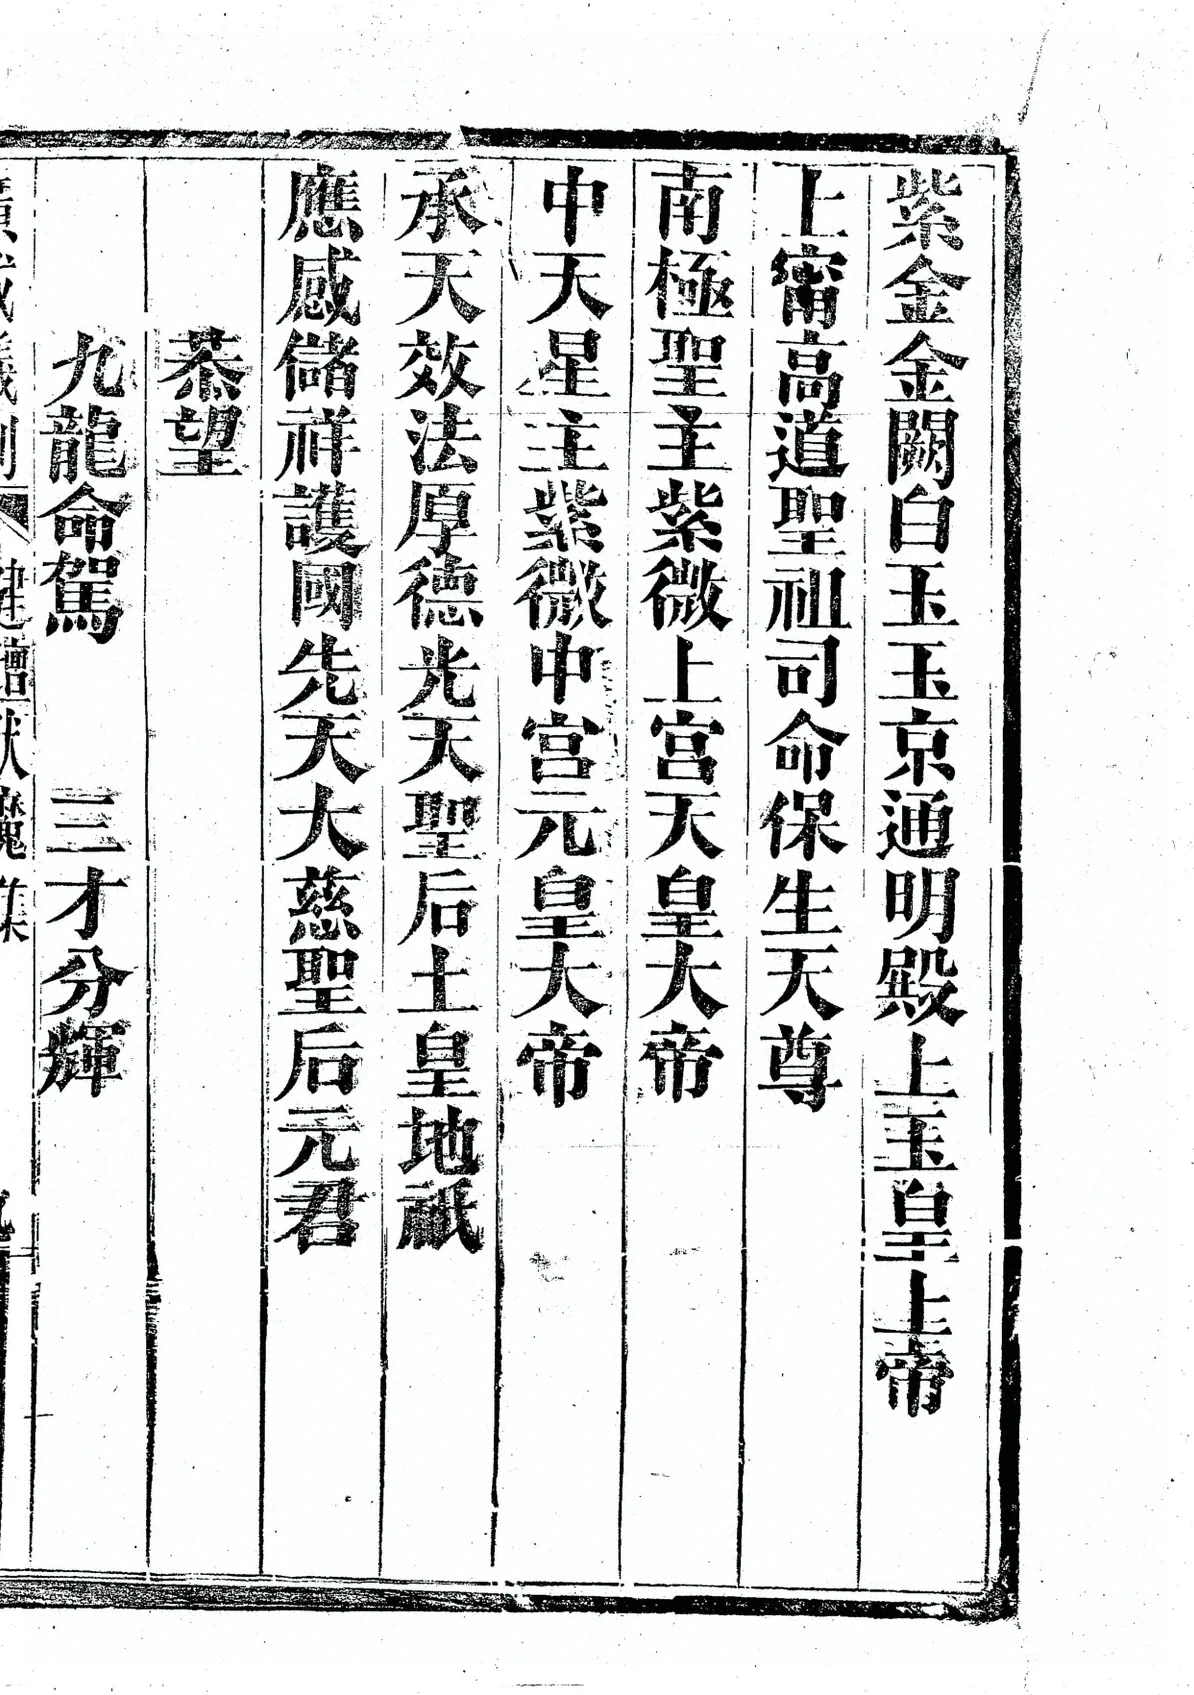 紫金金闕白玉玉京通明殿上玉皇上帝
上甯高道聖祖司命保生天尊
南極聖主紫微上宮天皇大帝
中天星主紫微中宮元皇大帝
承天效法厚德光天聖后土皇地祇
應感儲祥護國先天大慈聖后元君
恭望
九龍命駕　三才分輝